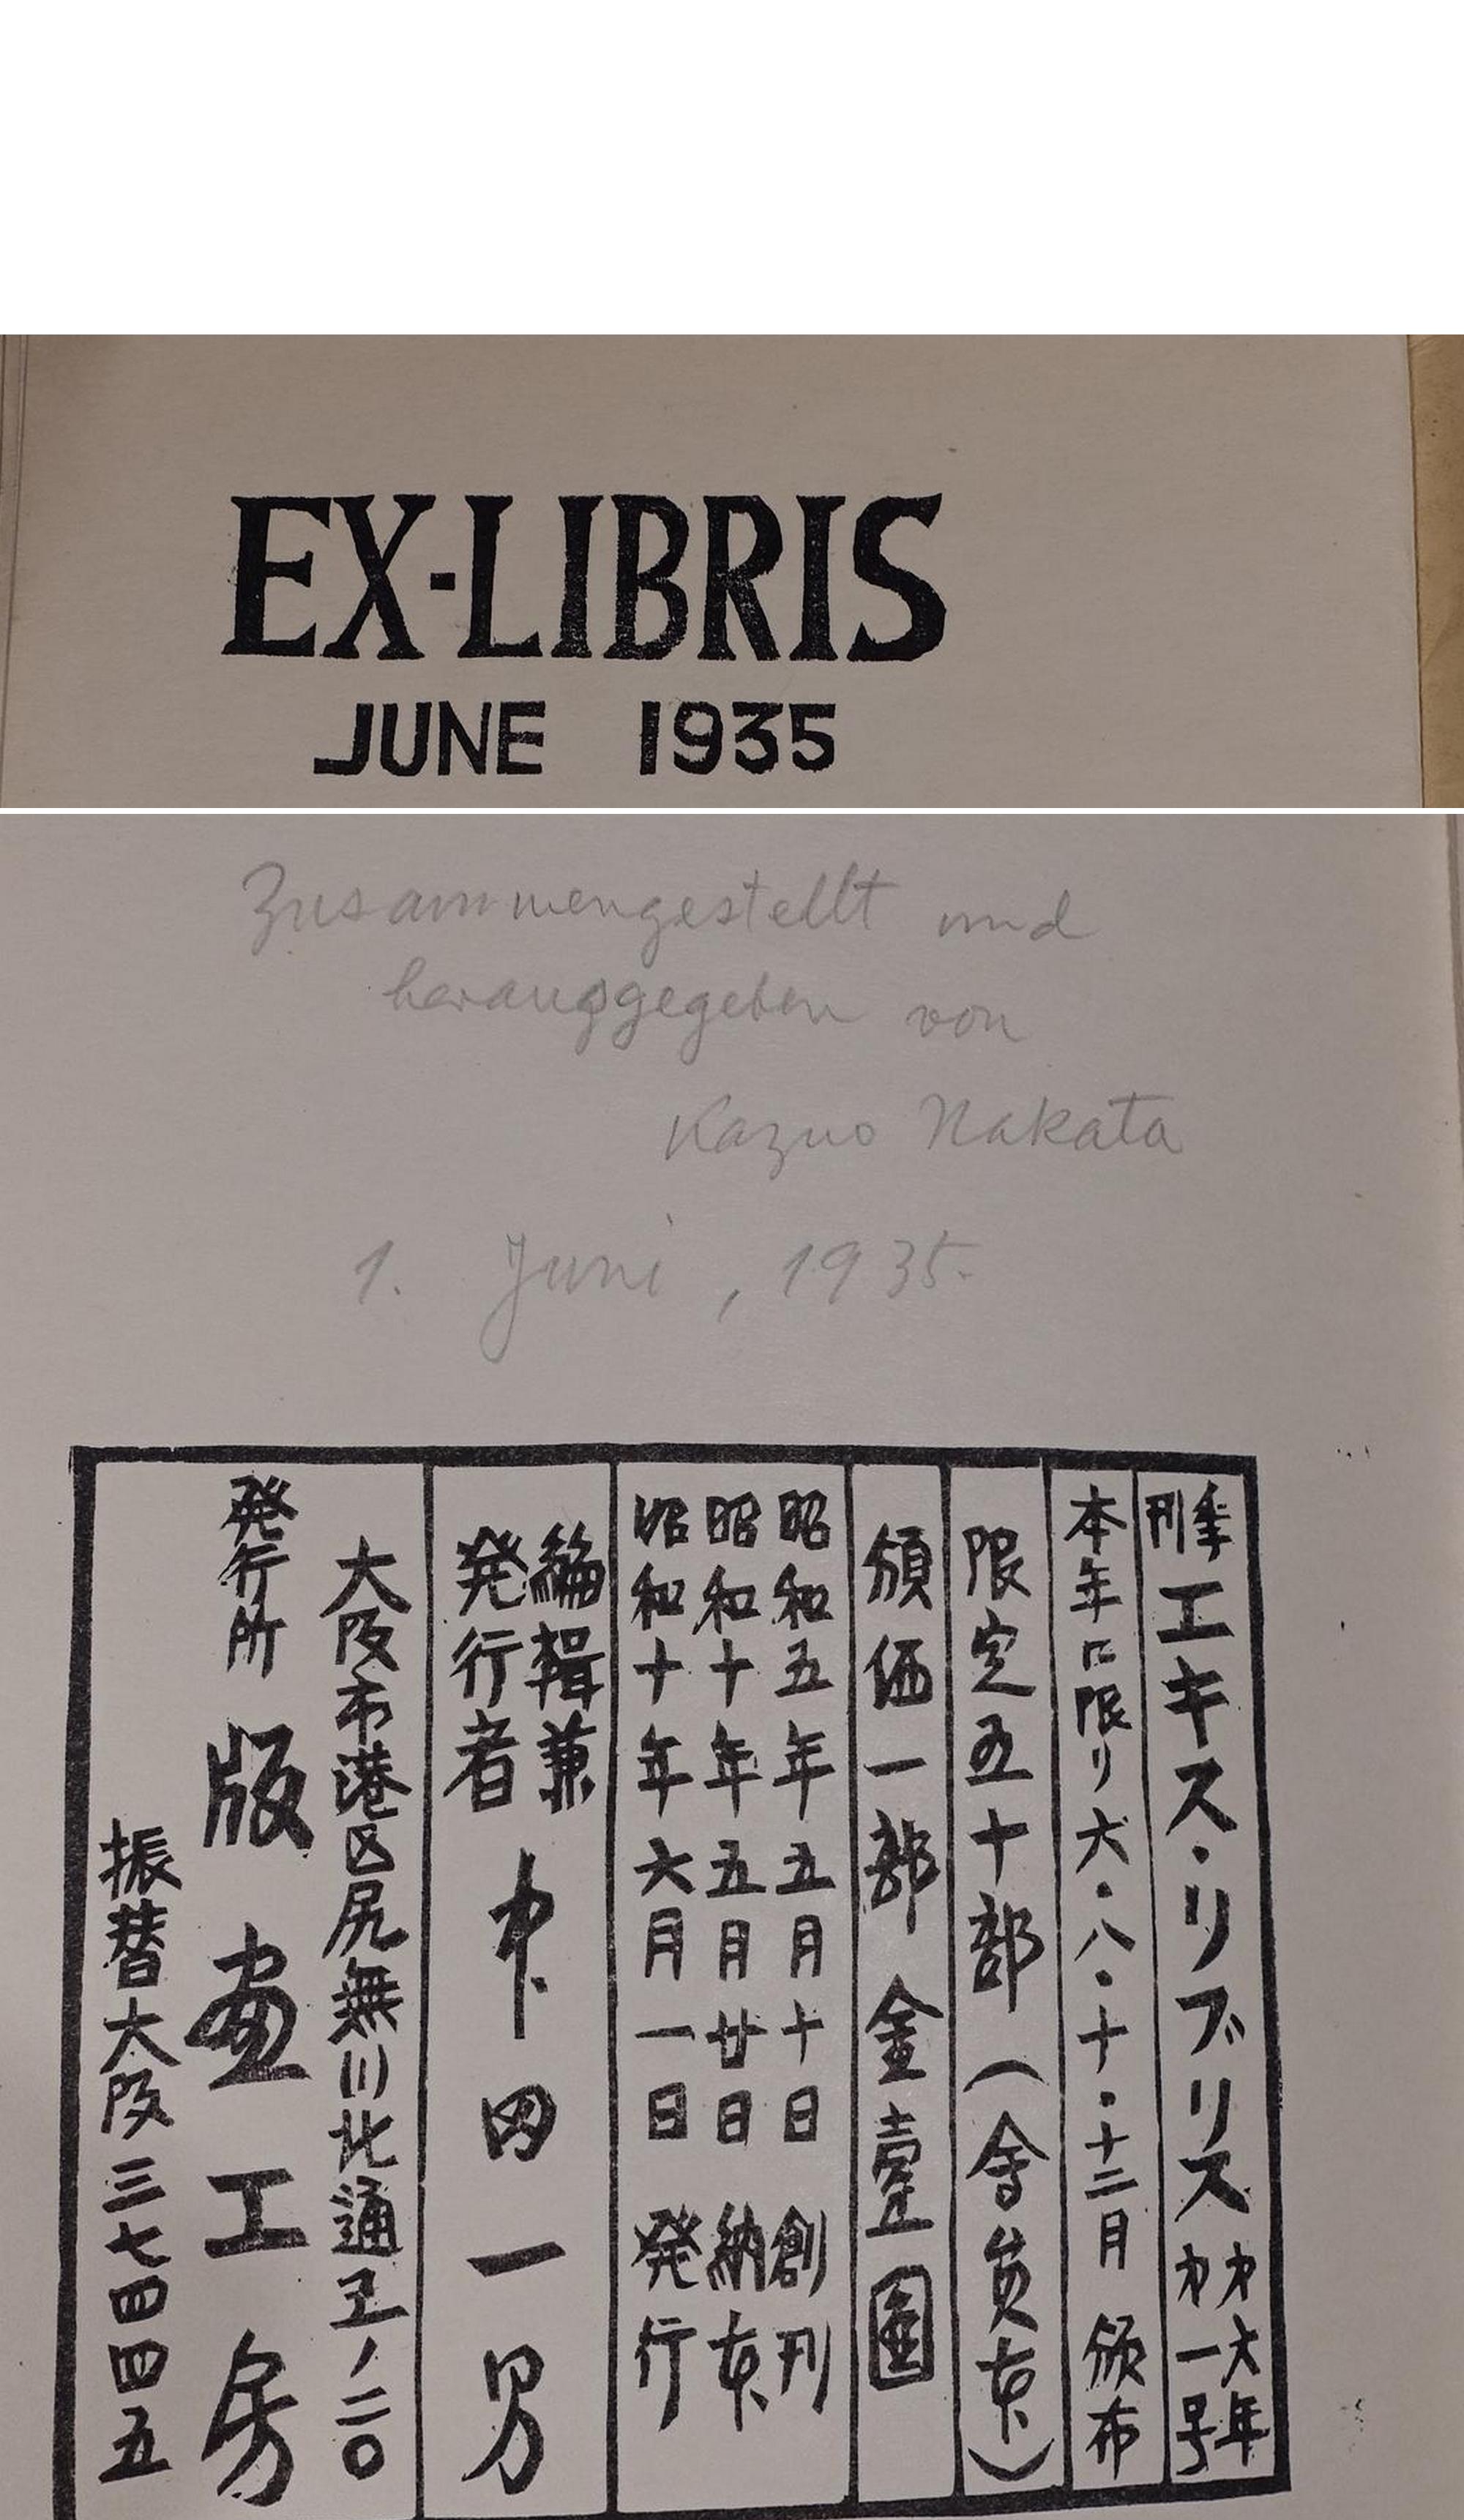 EX-LIBRIS
JUNE 1935
Zusammengestellt und
herausgegeben von
Kazuo Nakata
1. Juni, 1935.
季刊 エキス・リブリス 才六年 才一号
本年に限り六・八・十・十二月 頒布
限定五十部(会員本)
頒価一部 金壹圓
昭和五年五月十日 創刊
昭和十年五月廿日 納本
昭和十年六月一日 発行
編輯兼
発行者 中田一男
大阪市港区尻無川北通五ノ二〇
発行所 版画工房
振替大阪三七四四五